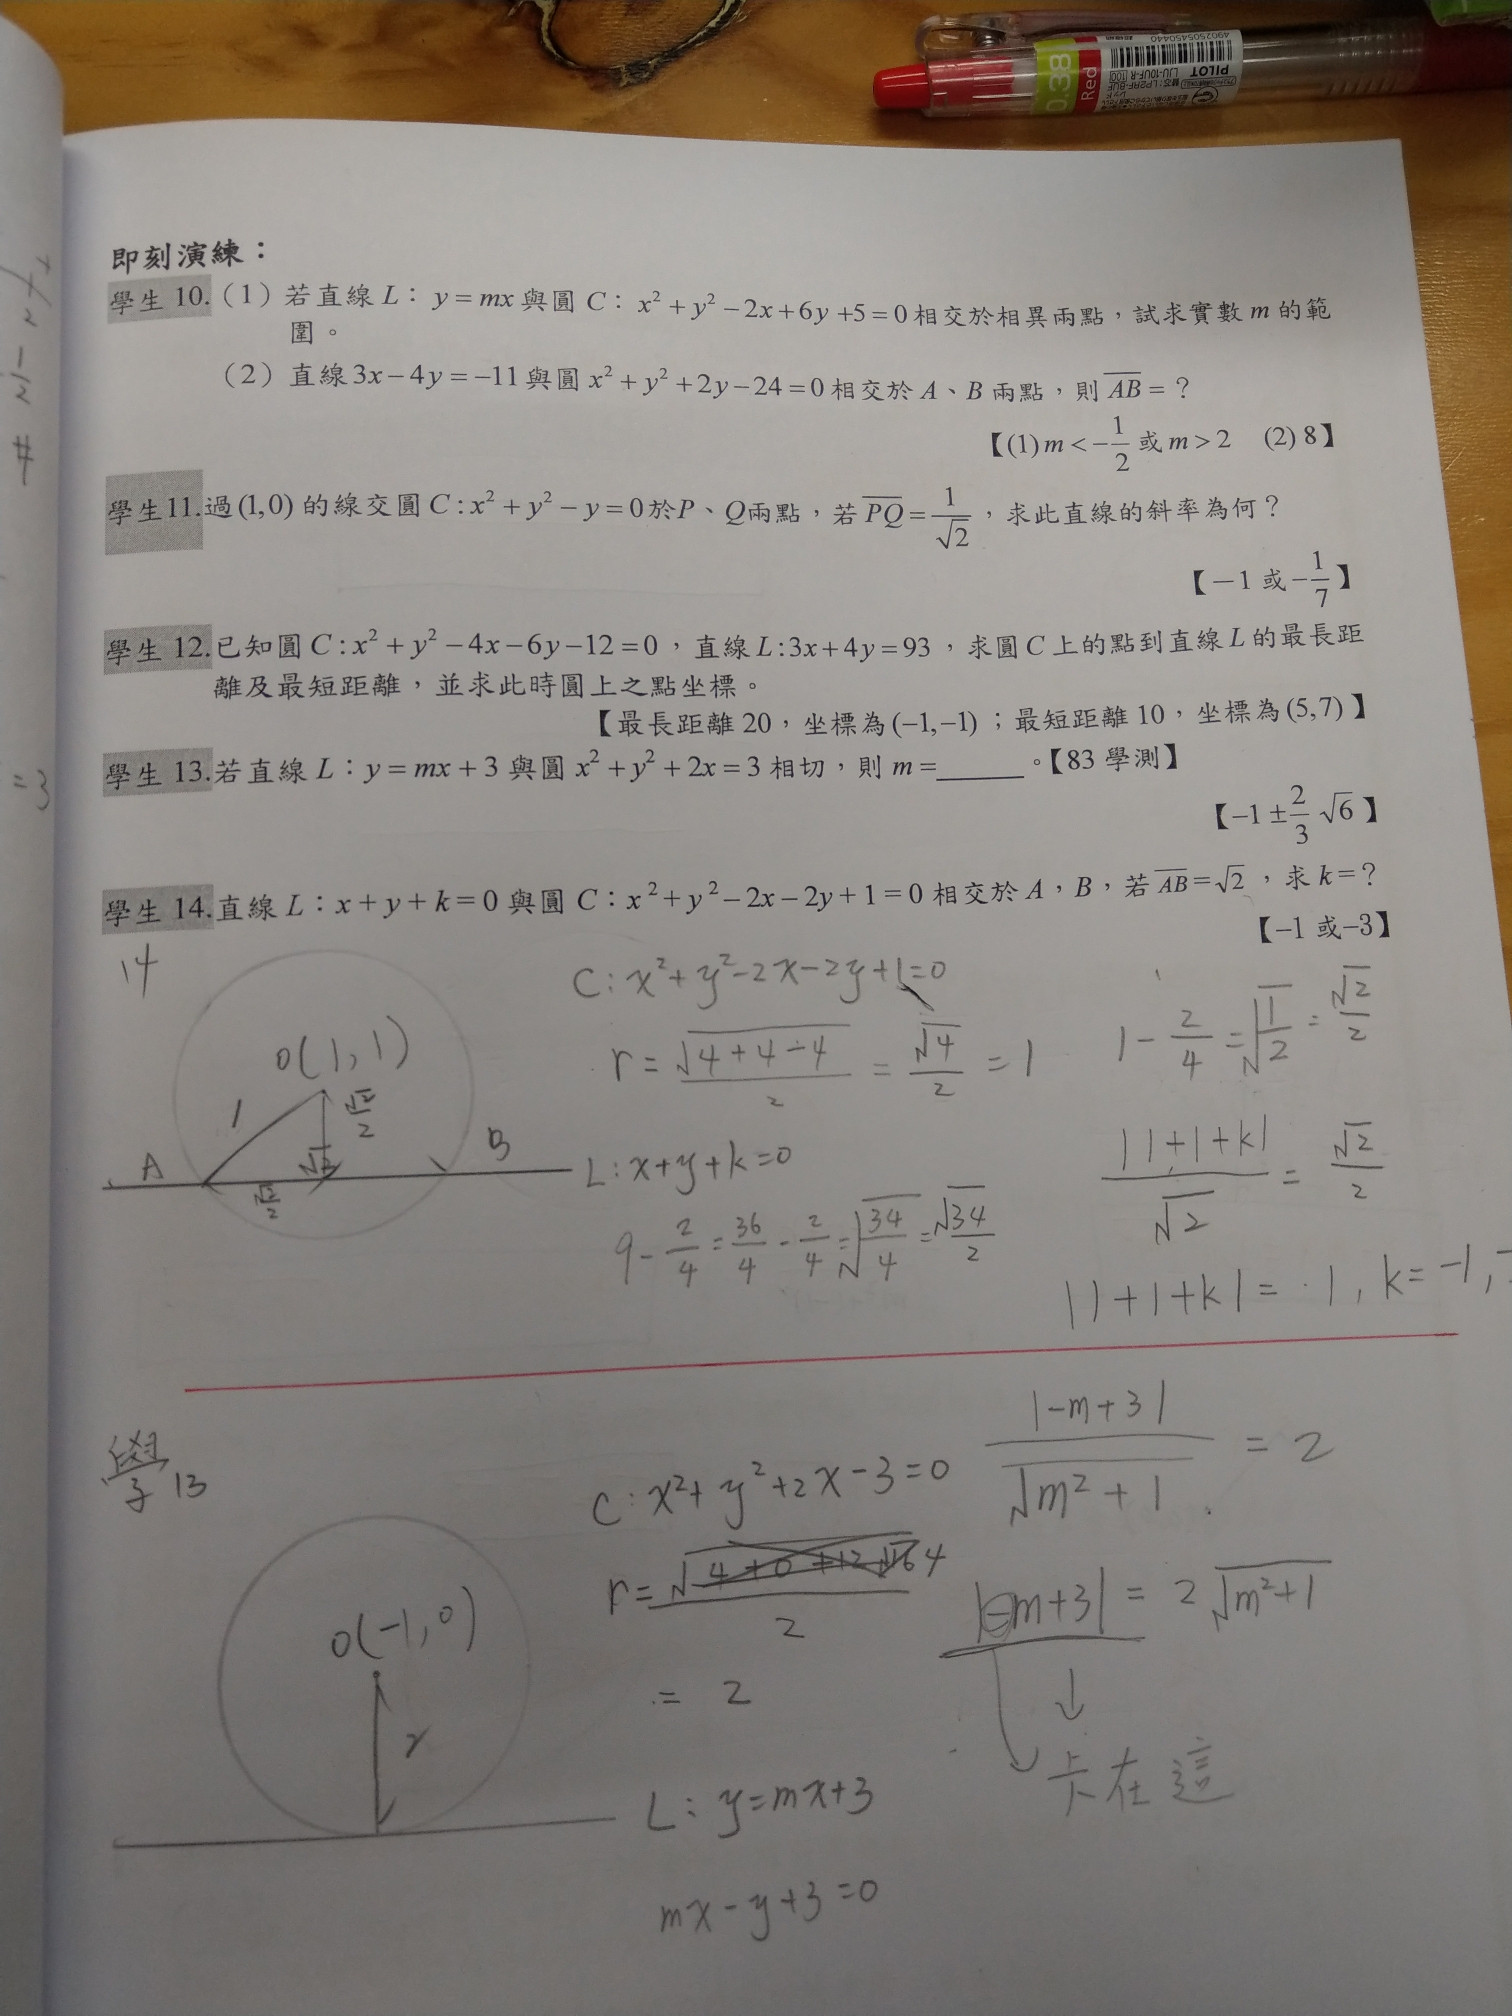 4902505450440
PILOT
LJU-10UF-R [100]
替芯:LP2RF-8UF
0.38
Red
即刻演練：
學生 10.（1）若直線 L： y = mx 與圓 C： x² + y² − 2x + 6y + 5 = 0 相交於相異兩點，試求實數 m 的範
圍。
（2）直線 3x − 4y = −11 與圓 x² + y² + 2y − 24 = 0 相交於 A、B 兩點，則 \overline{AB} = ？
【(1) m < −\frac{1}{2} 或 m > 2 (2) 8】
學生11.過 (1,0) 的線交圓 C : x² + y² − y = 0 於P、Q兩點，若 \overline{PQ} = \frac{1}{\sqrt{2}} ，求此直線的斜率為何？
【−1 或 −\frac{1}{7}】
學生 12.已知圓 C : x² + y² − 4x − 6y − 12 = 0 ，直線 L : 3x + 4y = 93 ，求圓 C 上的點到直線 L 的最長距
離及最短距離，並求此時圓上之點坐標。
【最長距離 20，坐標為 (−1,−1) ；最短距離 10，坐標為 (5,7) 】
學生 13.若直線 L：y = mx + 3 與圓 x² + y² + 2x = 3 相切，則 m = ______。【83 學測】
【−1 ± \frac{2}{3} √6 】
學生 14.直線 L：x + y + k = 0 與圓 C：x² + y² − 2x − 2y + 1 = 0 相交於 A，B，若 \overline{AB} = √2 ，求 k = ？
【−1 或−3】
14
C: x² + y² − 2x − 2y + 1 = 0
r = \frac{\sqrt{4+4-4}}{2} = \frac{\sqrt{4}}{2} = 1
1 − \frac{2}{4} = \sqrt{\frac{1}{2}} = \frac{\sqrt{2}}{2}
O(1,1)
1
\frac{\sqrt{2}}{2}
√2
\frac{\sqrt{2}}{2}
A
B
L: x + y + k = 0
\frac{|1+1+k|}{\sqrt{2}} = \frac{\sqrt{2}}{2}
9 − \frac{2}{4} = \frac{36}{4} − \frac{2}{4} = \sqrt{\frac{34}{4}} = \frac{\sqrt{34}}{2}
|1+1+k| = 1, k = −1,
學13
C: x² + y² + 2x − 3 = 0
\frac{|−m+3|}{\sqrt{m²+1}} = 2
r = \frac{\sqrt{4+0+12} √16 4}{2}
= 2
|−m+3| = 2\sqrt{m²+1}
卡在這
O(−1,0)
r
L: y = mx + 3
mx − y + 3 = 0
\frac{1}{2}
#
=3